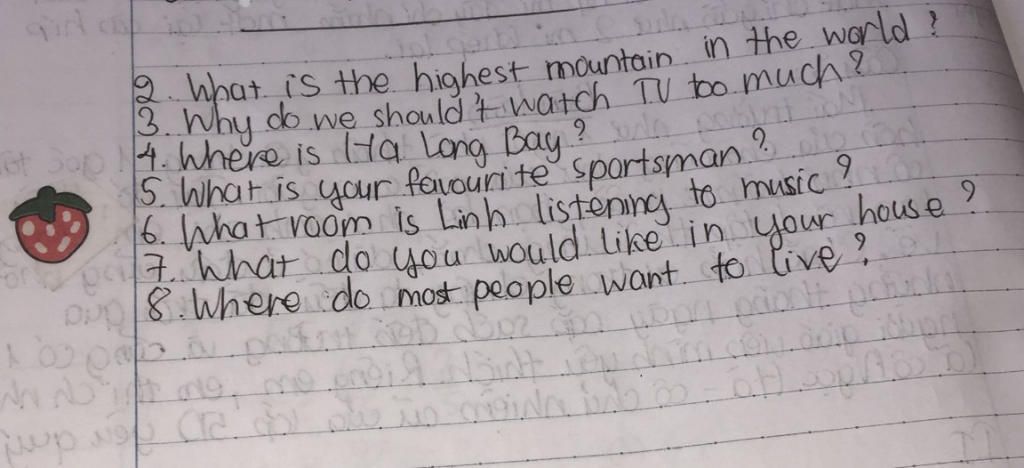 2. What is the highest mountain in the world?
3. Why do we should't watch TV too much?
4. Where is Ha Long Bay?
5. What is your favourite sportsman?
6. What room is Linh listening to music?
7. What do you would like in your house?
8. Where do most people want to live?